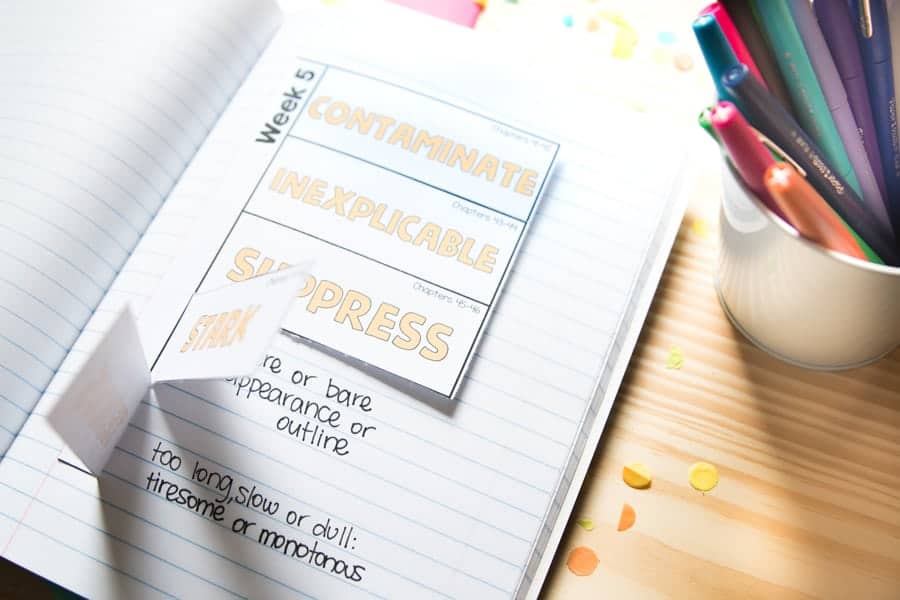 Week 5
CONTAMINATE
Chapters
INEXPLICABLE
Chapters 43-44
SUPPRESS
Chapters 45-46
STARK
or bare
appearance or
outline
too long, slow or dull:
tiresome or monotonous